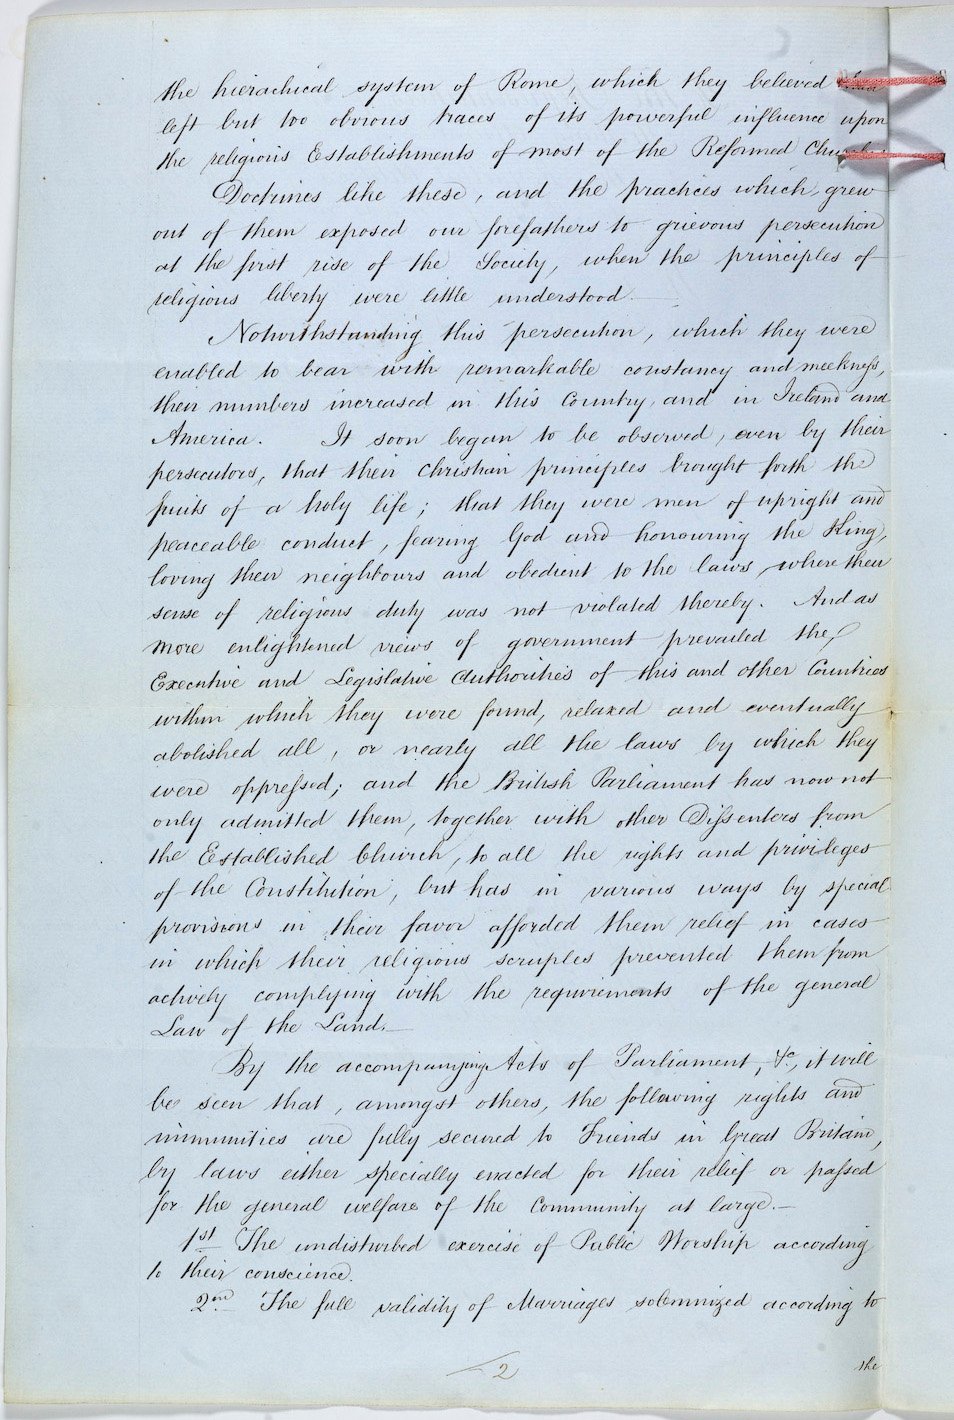 the hierachical system of Rome, which they believed had
left but too obvious traces of its powerful influence upon
the religious Establishments of most of the Reformed
Doctrines like these, and the practices which grew
out of them exposed our forefathers to grievous persecution
at the first rise of the Society, when the principles of
religious liberty were little understood.
Notwithstanding this persecution, which they were
enabled to bear with remarkable constancy and meekness,
their numbers increased in this Country, and in Ireland and
America. It soon began to be observed, even by their
persecutors, that their Christian principles brought forth the
fruits of a holy life; that they were men of upright and
peaceable conduct, fearing God and honouring the King,
loving their neighbours and obedient to the laws, where their
sense of religious duty was not violated thereby. And as
more enlightened views of government prevailed the
Executive and Legislative Authorities of this and other Countries
within which they were found, relaxed and eventually
abolished all, or nearly all the laws by which they
were oppressed; and the British Parliament has now not
only admitted them, together with other Dissenters from
the Established Church, to all the rights and privileges
of the Constitution, but has in various ways by special
provisions in their favor afforded them relief in cases
in which their religious scruples prevented them from
actively complying with the requirements of the general
Law of the Land.
By the accompanying Acts of Parliament, &c., it will
be seen that, amongst others, the following rights and
immunities are fully secured to Friends in Great Britain,
by laws either specially enacted for their relief or passed
for the general welfare of the Community at large.—
1st The undisturbed exercise of Public Worship according
to their conscience.
2nd The full validity of Marriages solemnized according to
the
2